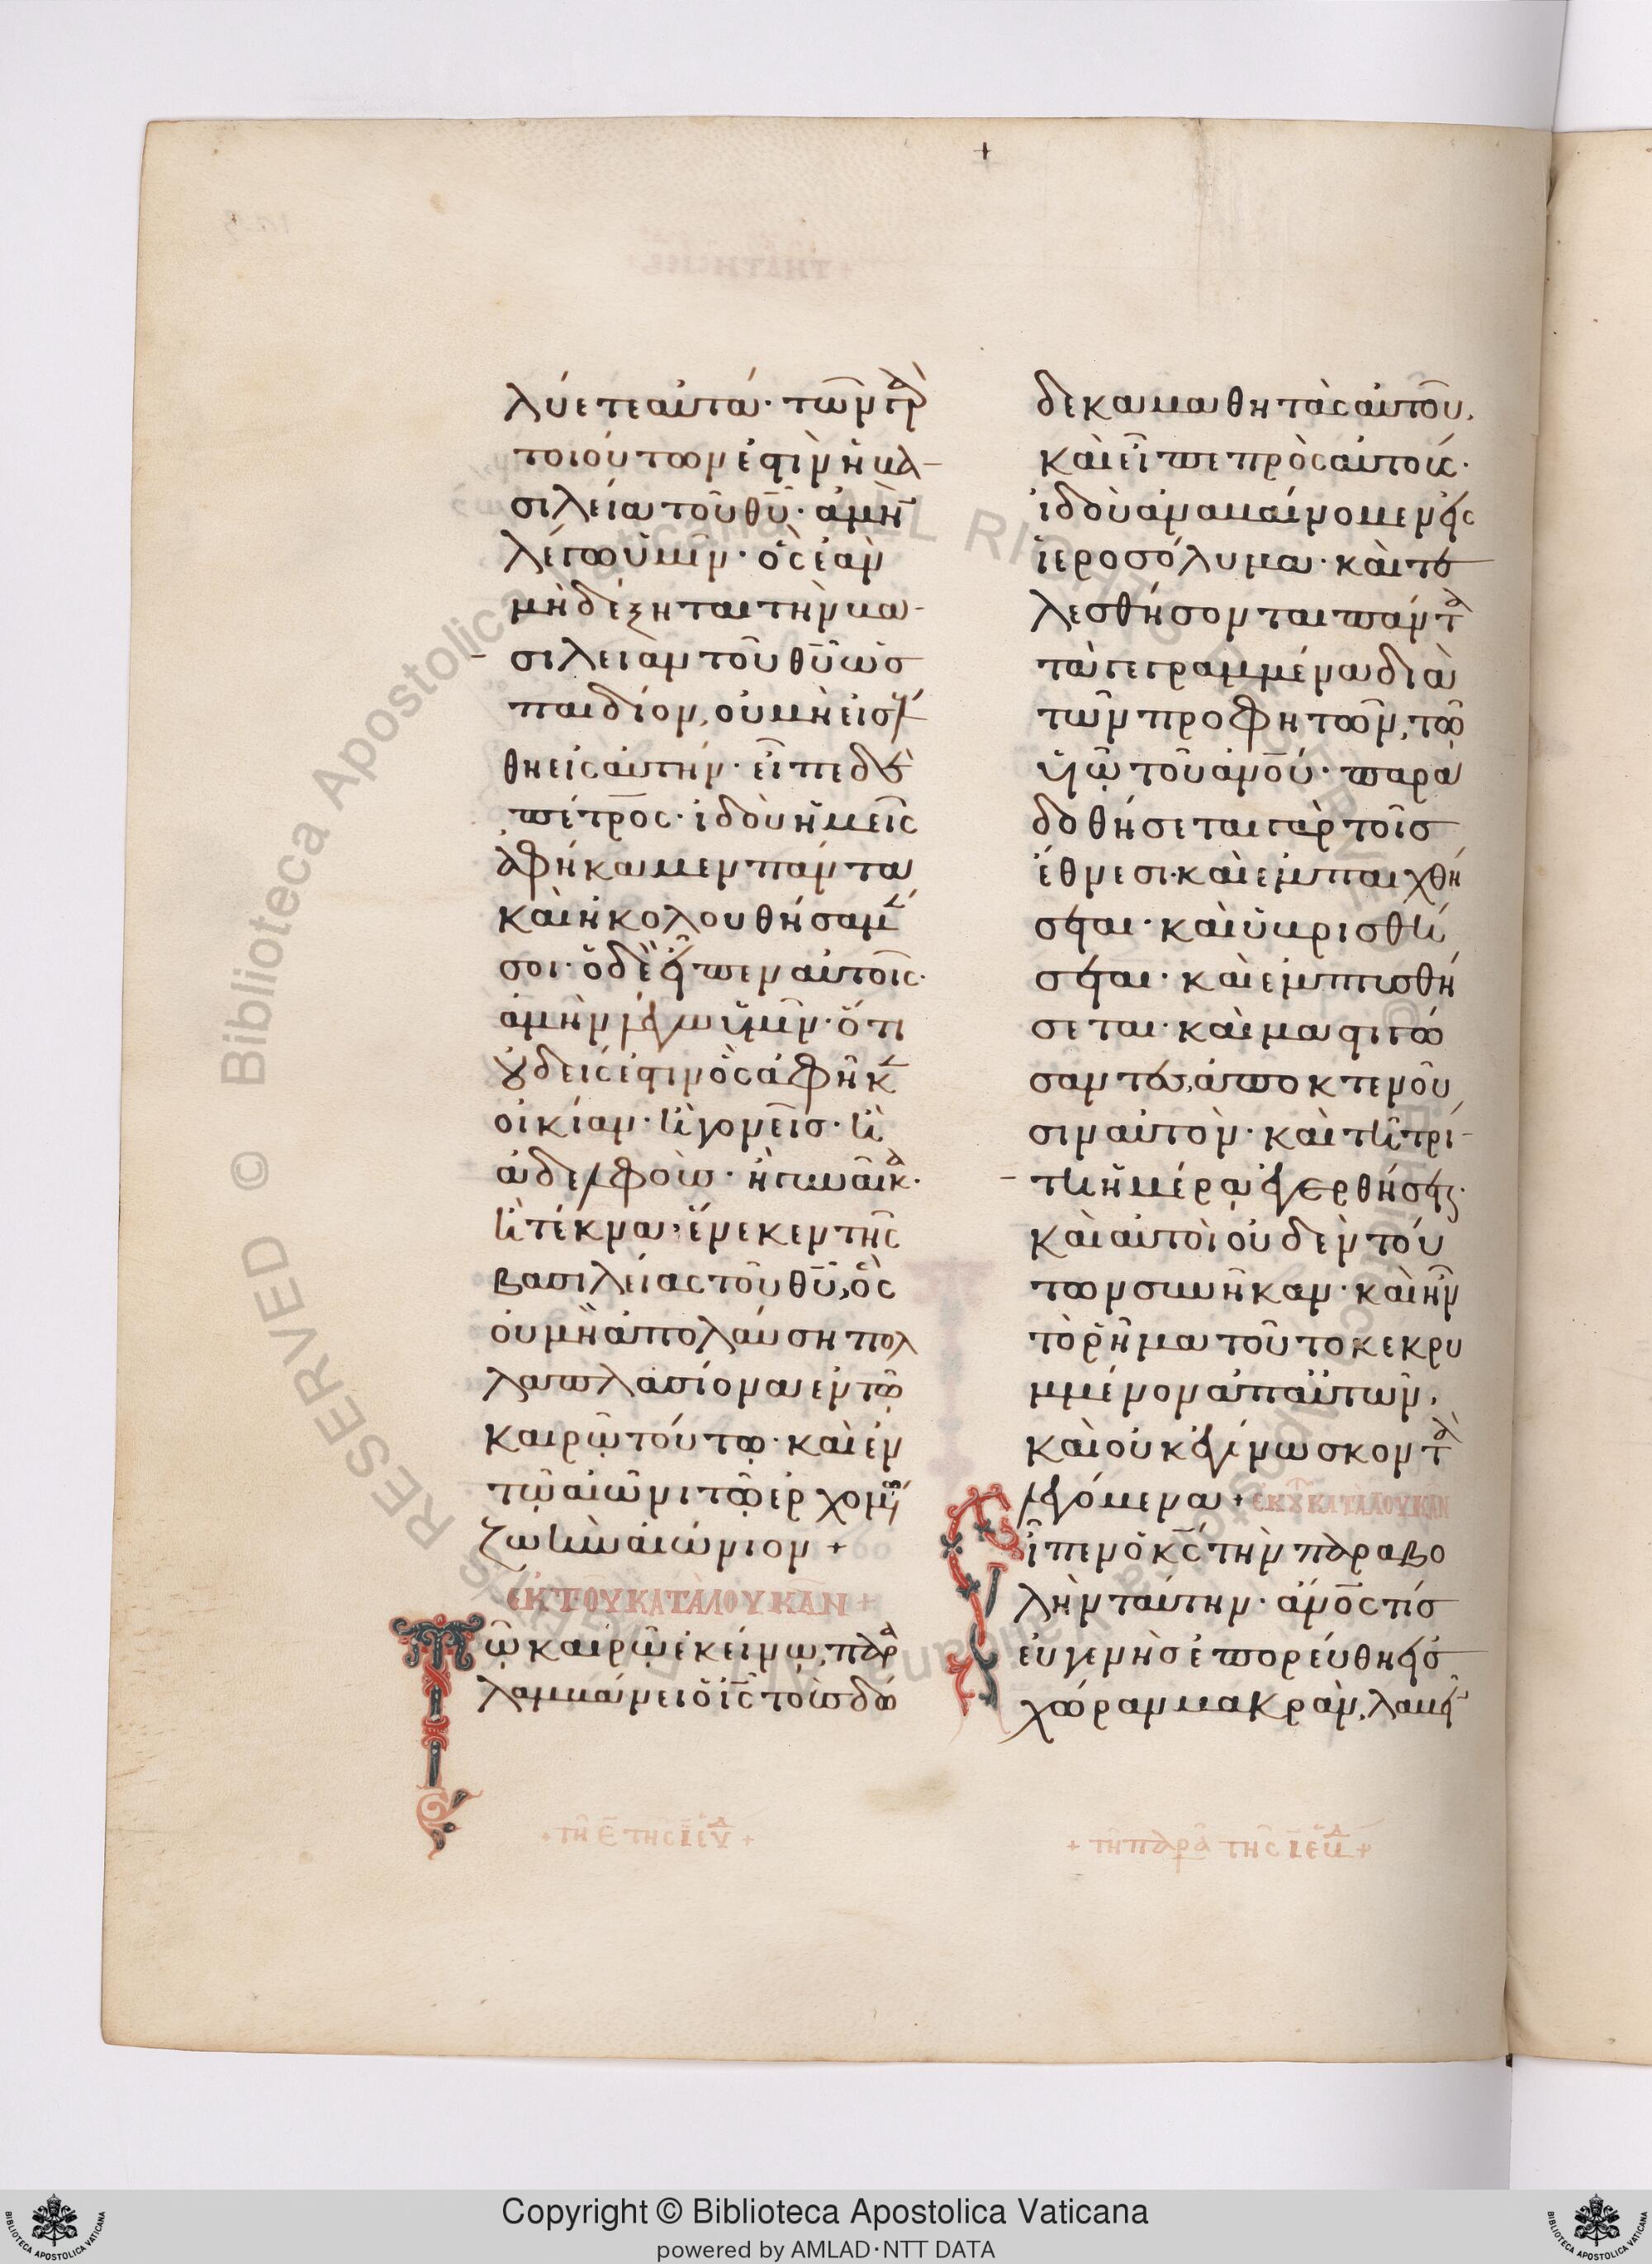 +
λύετε αὐτά· τῶν γὰρ
τοιούτων ἐστὶν ἡ βα-
σιλεία τοῦ θῦ· ἀμὴν
λέγω ὑμῖν· ὃς ἐὰν
μὴ δέξηται τὴν βα-
σιλείαν τοῦ θῦ ὡς
παιδίον, οὐ μὴ εἰσέλ
θη εἰς αὐτήν· εἶπε δὲ
πέτρος· ἰδοὺ ἡμεῖς
ἀφήκαμεν πάντα
καὶ ἠκολουθήσαμέν
σοι· ὁ δὲ εἶπεν αὐτοῖς·
ἀμὴν λέγω ὑμῖν· ὅτι
οὐδείς ἐστιν ὃς ἀφῆκεν
οἰκίαν· ἢ γονεῖς· ἢ
ἀδελφοὺς· ἢ γυναῖκα·
ἢ τέκνα, ἕνεκεν τῆς
βασιλείας τοῦ θῦ, ὃς
οὐ μὴ ἀπολαύση πολ
λαπλασίονα ἐν τῶ
καιρῷ τούτῳ· καὶ ἐν
τῷ αἰῶνι τῷ ἐρχομένῳ
ζωὴν αἰώνιον +
ἐκ τοῦ κατὰ λουκᾶν +
Τῷ καιρῷ ἐκείνῳ, παρα
λαμβάνει ὁ ις τοὺς δώ
+ τῇ ε̄ τῆς ῑε ἑβδ +
δεκα μαθητὰς αὐτοῦ,
καὶ εἶπε πρὸς αὐτούς·
ἰδοὺ ἀναβαίνομεν εἰς
ἱεροσόλυμα· καὶ τε
λεσθήσονται πάντα
τὰ γεγραμμένα διὰ
τῶν προφητῶν, τῷ
υἱῷ τοῦ ἀνοῦ· παρα
δοθήσεται γὰρ τοῖς
ἔθνεσι· καὶ ἐμπαιχθή
σεται· καὶ ὑβρισθή
σεται· καὶ ἐμπτυσθή
σεται· καὶ μαστιγώ
σαντες, ἀποκτενοῦ
σιν αὐτὸν· καὶ τῆ τρί-
τη ἡμέρᾳ ἐγερθήσεται·
καὶ αὐτοὶ οὐδὲν τού
των συνῆκαν· καὶ ἦν
τὸ ῥῆμα τοῦτο κεκρυ
μμένον ἀπ' αὐτῶν,
καὶ οὐκ ἐγίνωσκον τὰ
λεγόμενα + ἐκ τοῦ κατὰ λουκᾶν
Εἶπεν ὁ κς τὴν παραβο
λὴν ταύτην· ἀνος τίς
εὐγενὴς ἐπορεύθη εἰς
χώραν μακρὰν, λαβεῖν
+ τῇ παρα τῆς ῑε ἑβδ +
Copyright © Biblioteca Apostolica Vaticana
powered by AMLAD·NTT DATA